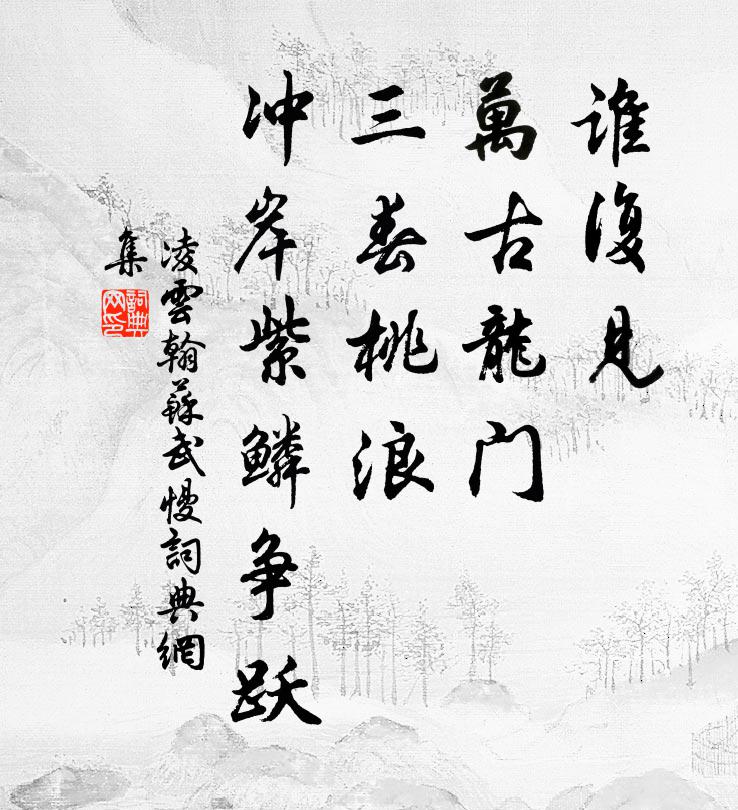 谁復見
萬古龍门
三春桃浪
冲岸紫鳞争跃
凌雲翰蘇武慢詞典網
集
詞典
网印